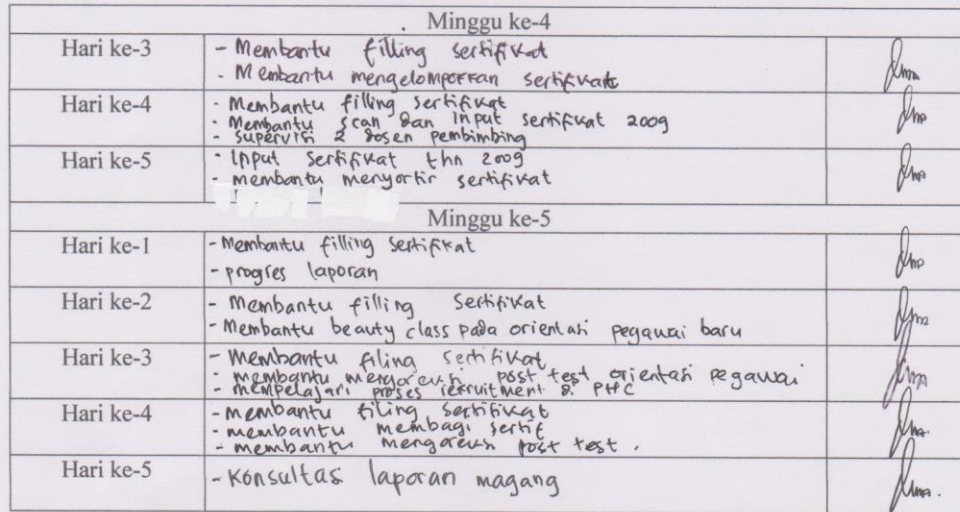 Minggu ke-4
Hari ke-3
- Membantu filling sertifikat
- Membantu mengelompokkan sertifikat
Hari ke-4
- Membantu filling sertifikat
- Membantu scan dan input sertifikat 2009
- supervisi 2 dosen pembimbing
Hari ke-5
- Input sertifikat thn 2009
- membantu menyortir sertifikat
Minggu ke-5
Hari ke-1
- Membantu filling sertifikat
- progres laporan
Hari ke-2
- Membantu filling sertifikat
- Membantu beauty class pada orientasi pegawai baru
Hari ke-3
- Membantu filing sertifikat
- membantu mengoreksi post test orientasi pegawai
- mempelajari proses recruitment & PHC
Hari ke-4
- membantu filing sertifikat
- membantu membagi sertif
- membantu mengoreksi post test.
Hari ke-5
- Konsultasi laporan magang